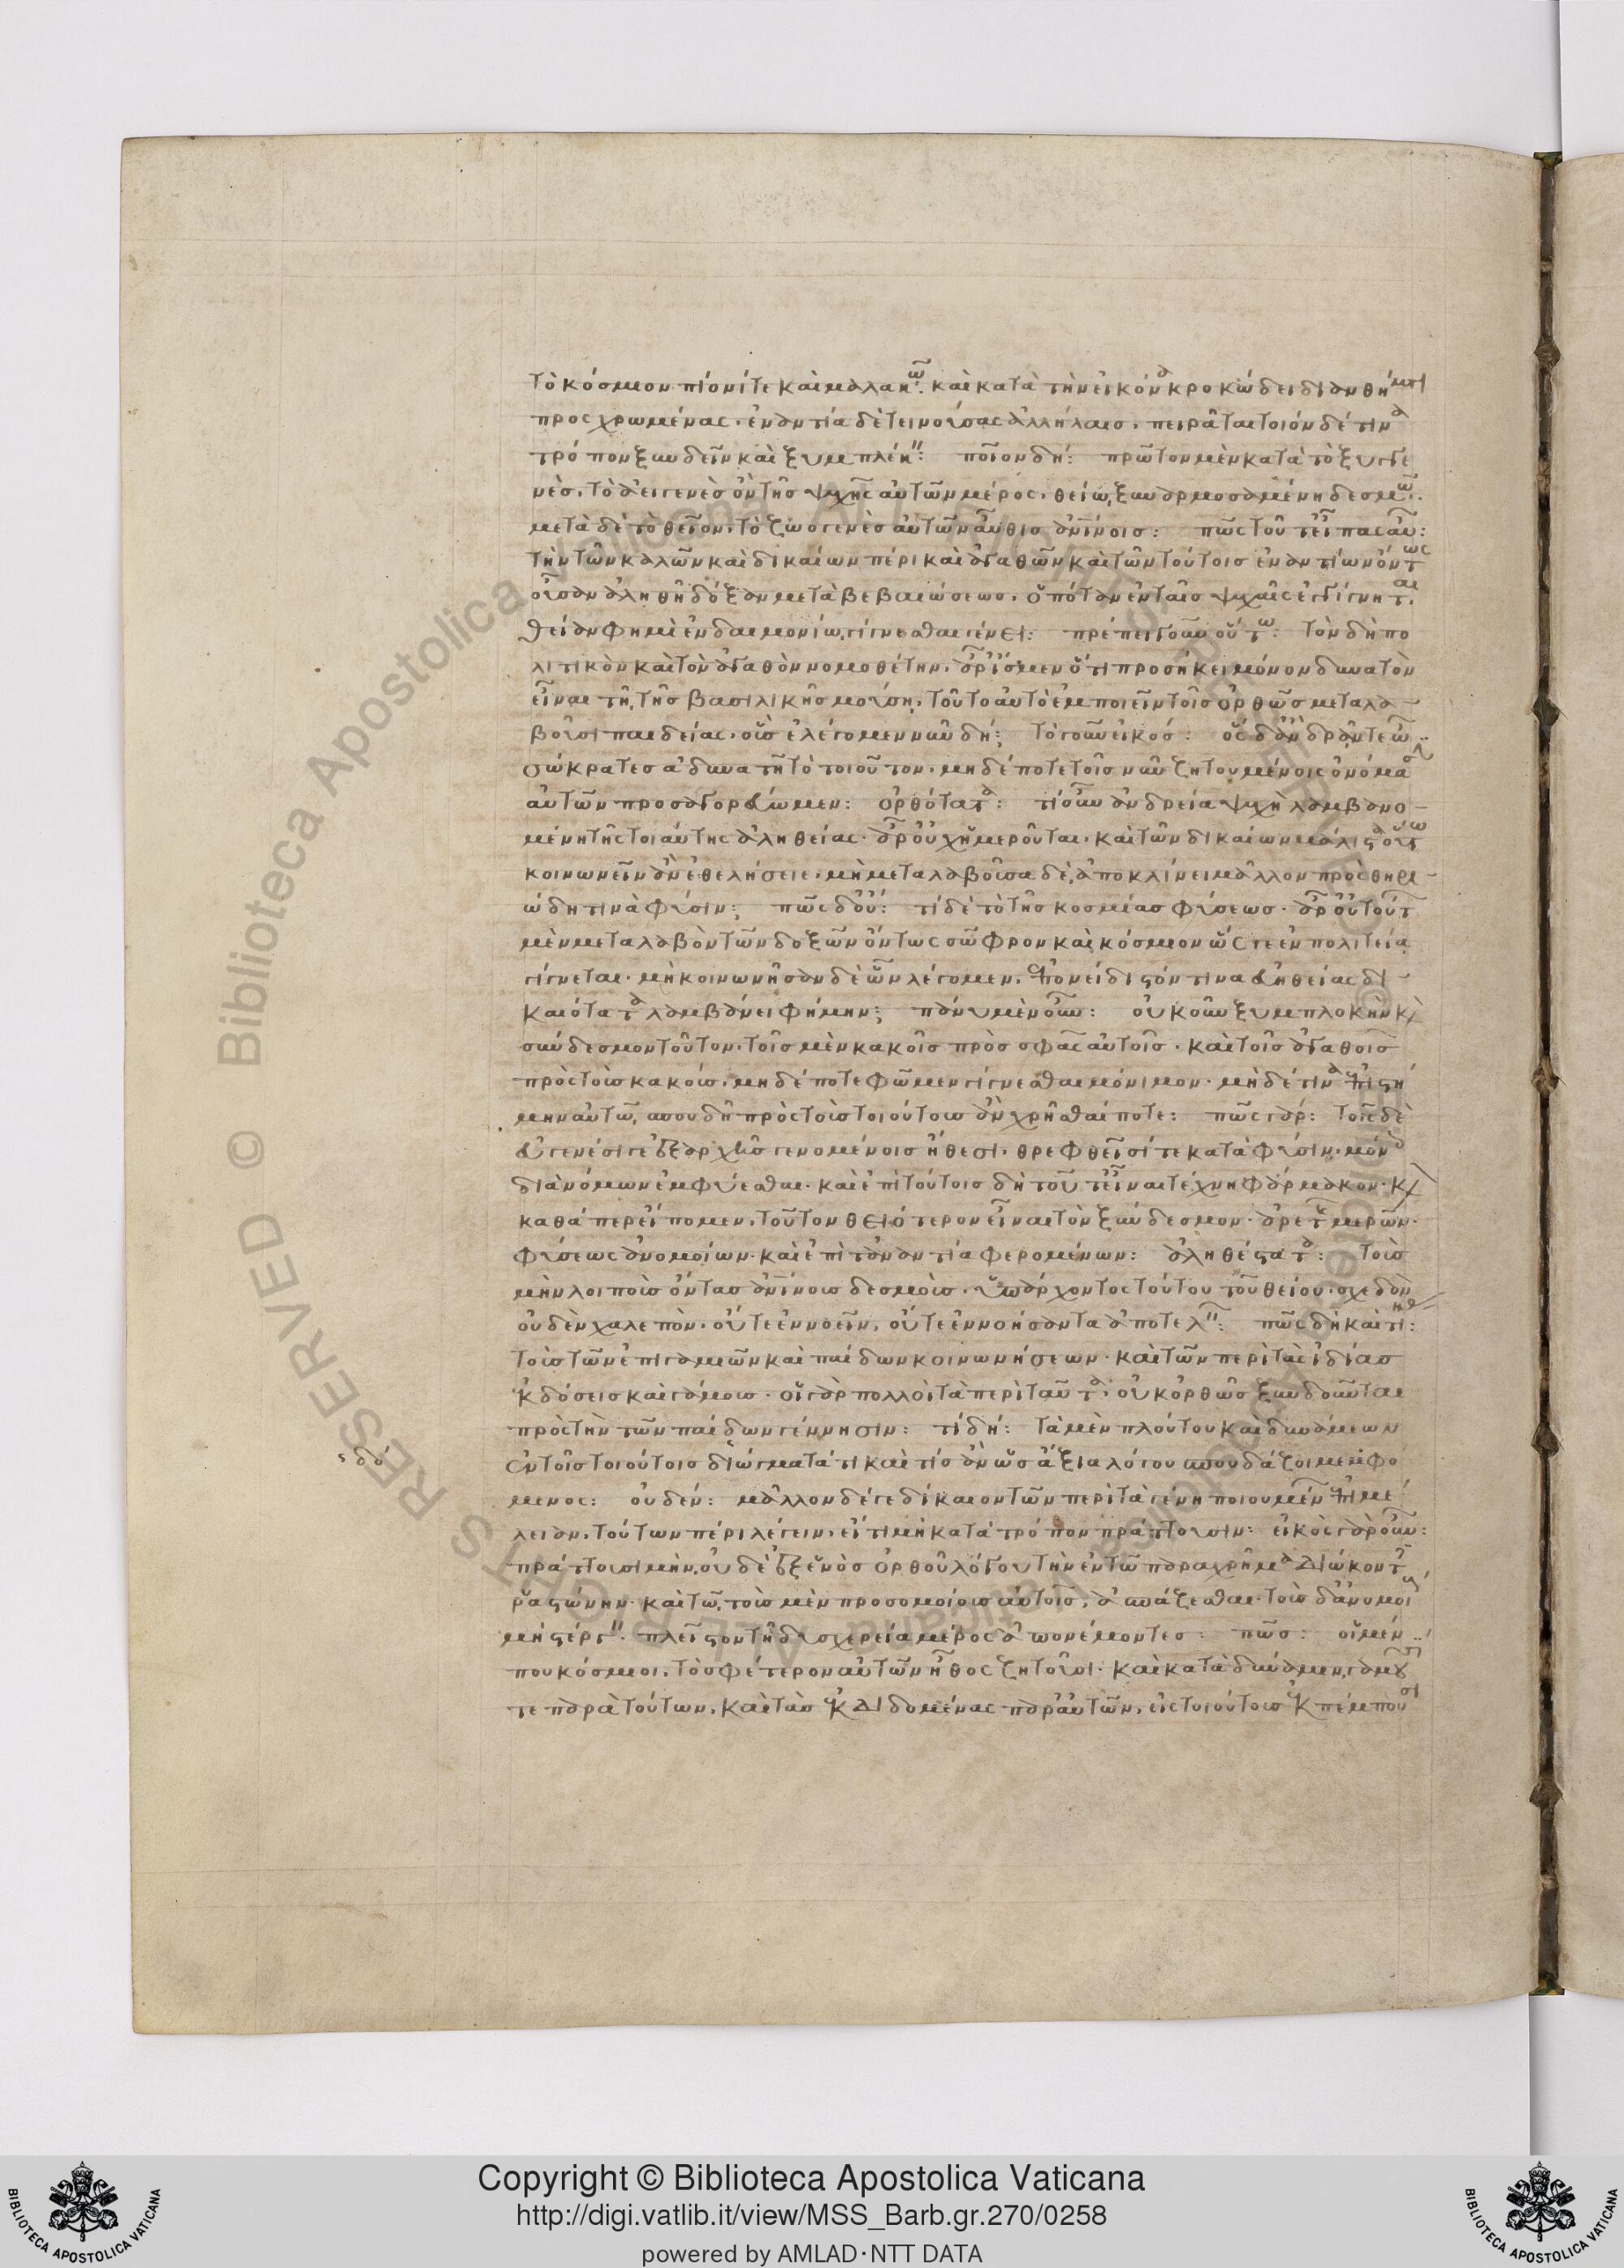 τὸ κόσμιον πίονί τε καὶ μαλακῷ· καὶ κατὰ τὴν εἰκόνα κροκώδει διανθήματι
προσχρωμένας· ἐναντία δὲ τεινούσας ἀλλήλαις, πειρᾶται τοιόνδε τινὰ
τρόπον ξυνδεῖν καὶ ξυμπλέκειν: ποῖον δή: πρῶτον μὲν κατὰ τὸ ξυγγε
νὲς, τὸ ἀειγενὲς ὂν τῆς ψυχῆς αὐτῶν μέρος, θείω ξυναρμοσαμένη δεσμῷ·
μετὰ δὲ τὸ θεῖον, τὸ ζωογενὲς αὐτῶν αὖθις ἀνίνοις: πῶς τοῦτ εἶπας αὖ:
τὴν τῶν καλῶν καὶ δικαίων πέρι καὶ ἀγαθῶν καὶ τῶν τούτοις ἐναντίων ὄντως
οὖσαν ἀληθῆ δόξαν μετὰ βεβαιώσεως, ὁπόταν ἐν ταῖς ψυχαῖς ἐγγίγνηται,
θείαν φημὶ ἐν δαιμονίω γίγνεσθαι γένει: πρέπει γοῦν οὕτω: τὸν δὴ πο
λιτικὸν καὶ τὸν ἀγαθὸν νομοθέτην, ἆρ ἴσμεν ὅτι προσήκει μόνον δυνατὸν
εἶναι τῇ τῆς βασιλικῆς μούσῃ, τοῦτο αὐτὸ ἐμποιεῖν τοῖς ὀρθῶς μεταλα
βοῦσι παιδείας, οἷς ἐλέγομεν νῦν δή; τὸ γοῦν εἰκός: ὃς δ ἂν δρᾶν γε ὦ
σώκρατες ἀδυνατῇ τὸ τοιοῦτον, μηδέποτε τοῖς νῦν ζητουμένοις ὀνόμασιν
αὐτῶν προσαγορεύωμεν: ὀρθότατα: τί οὖν ἀνδρεία ψυχὴ λαμβανο
μένη τῆς τοιαύτης ἀληθείας· ἆρ οὐχ ἡμεροῦται, καὶ τῶν δικαίων μάλιστα οὕτω
κοινωνεῖν ἂν ἐθελήσειε, μὴ μεταλαβοῦσα δὲ, ἀποκλίνει μᾶλλον πρὸς θηρι
ώδη τινὰ φύσιν; πῶς δ οὔ: τί δὲ τὸ τῆς κοσμίας φύσεως· ἆρ οὐ τούτων
μὲν μεταλαβὸν τῶν δοξῶν ὄντως σῶφρον καὶ κόσμιον ὥς γε ἐν πολιτεία
γίγνεται· μὴ κοινωνῆσαν δὲ ὧν λέγομεν, ἐπονείδιστόν τινα εὐηθείας δι
καιότατα λαμβάνει φήμην; πάνυ μὲν οὖν: οὐκοῦν ξυμπλοκὴν καὶ
σύνδεσμον τοῦτον, τοῖς μὲν κακοῖς πρὸς σφᾶς αὐτοῖς, καὶ τοῖς ἀγαθοῖς
πρὸς τοὺς κακούς, μηδέποτε φῶμεν γίγνεσθαι μόνιμον· μηδέ τινα ἐπιστή
μην αὐτῷ σπουδῇ πρὸς τοὺς τοιούτους ἂν χρῆσθαί ποτε: πῶς γάρ: τοῖς δὲ
εὐγενέσι γε ἐξ ἀρχῆς γενομένοις ἤθεσι, θρεφθεῖσί τε κατὰ φύσιν, μόνα
διὰ νόμων ἐμφύεσθαι· καὶ ἐπὶ τούτοις δὴ τοῦτ εἶναι τέχνη φάρμακον· καὶ
καθάπερ εἴπομεν, τοῦτον θειότερον εἶναι τὸν ξύνδεσμον· ἀρετῆς μερῶν
φύσεως ἀνομοίων· καὶ ἐπὶ τἀναντία φερομένων: ἀληθέστατα: τοὺς
μὴν λοιποὺς ὄντας ἀνίνους δεσμοὺς, ὑπάρχοντος τούτου τοῦ θείου, σχεδὸν
οὐδὲν χαλεπὸν, οὔτε ἐννοεῖν, οὔτε ἐννοήσαντα ἀποτελεῖν: πῶς δὴ καὶ τί:
τοὺς τῶν ἐπιγαμιῶν καὶ παίδων κοινωνήσεων· καὶ τῶν περὶ τὰς ἰδίας
ἐκδόσεις καὶ γάμους· οἱ γὰρ πολλοὶ τὰ περὶ ταῦτα, οὐκ ὀρθῶς ξυνδοῦνται
πρὸς τὴν τῶν παίδων γέννησιν: τί δή: τὰ μὲν πλούτου καὶ δυνάμεων
ἐν τοῖς τοιούτοις διώγματα τί καί τις ἂν ὡς ἄξια λόγου σπουδάζοι μεμφό
μενος: οὐδέν: μᾶλλον δέ γε δίκαιον τῶν περὶ τὰ γένη ποιουμένων ἐπιμέ
λειαν, τούτων πέρι λέγειν, εἴ τι μὴ κατὰ τρόπον πράττουσιν: εἰκὸς γὰρ οὖν:
πράττουσι μὴν οὐδὲ ἐξ ἑνὸς ὀρθοῦ λόγου τὴν ἐν τῷ παραχρῆμα διώκοντες
ῥαστώνην· καὶ τῷ τοὺς μὲν προσομοίους αὑτοῖς, ἀσπάζεσθαι, τοὺς δ ἀνομοίους
μὴ στέργειν· πλεῖστον τῇ δυσχερείᾳ μέρος ἀπονέμοντες: πῶς: οἱ μέν
που κόσμιοι, τὸ σφέτερον αὐτῶν ἦθος ζητοῦσι· καὶ κατὰ δύναμιν, γαμοῦσί
τε παρὰ τούτων, καὶ τὰς ἐκδιδομένας παρ αὐτῶν, εἰς τοιούτους ἐκπέμπουσι
Copyright © Biblioteca Apostolica Vaticana
http://digi.vatlib.it/view/MSS_Barb.gr.270/0258
powered by AMLAD·NTT DATA
BIBLIOTECA APOSTOLICA VATICANA
BIBLIOTECA APOSTOLICA VATICANA